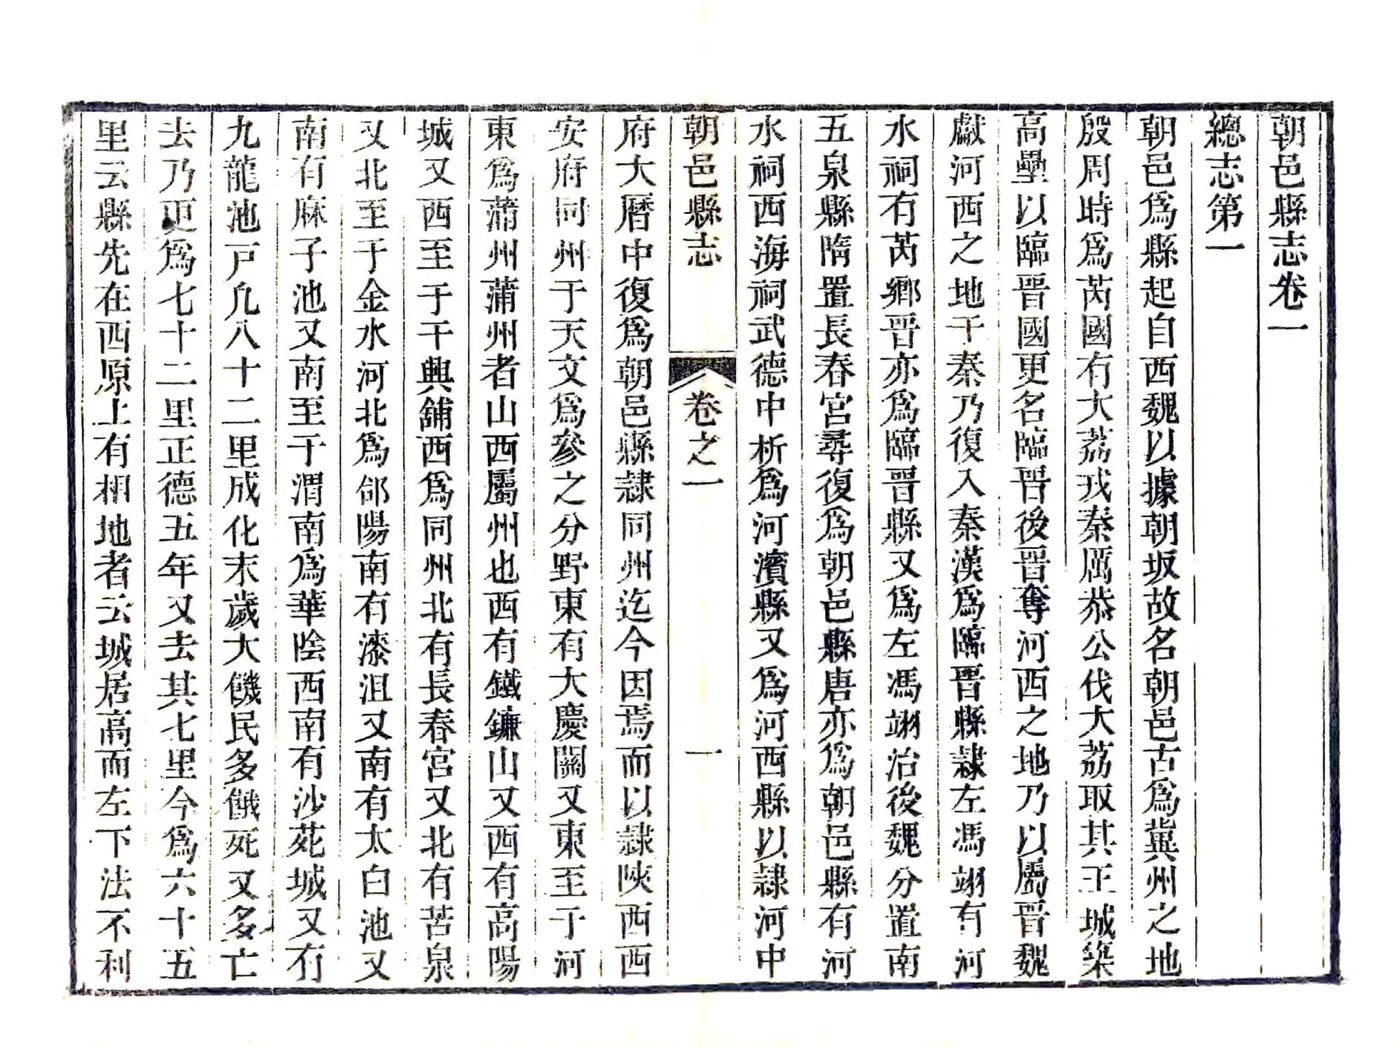 朝邑縣志卷一
總志第一
朝邑爲縣起自西魏以據朝坂故名朝邑古爲冀州之地
殷周時爲芮國有大荔戎秦厲恭公伐大荔取其王城築
高壘以臨晉國更名臨晉後晉奪河西之地乃以屬晉魏
獻河西之地于秦乃復入秦漢爲臨晉縣隷左馮翊有河
水祠有芮鄉晉亦爲臨晉縣又爲左馮翊治後魏分置南
五泉縣隋置長春宮尋復爲朝邑縣唐亦爲朝邑縣有河
水祠西海祠武德中析爲河濱縣又爲河西縣以隷河中
朝邑縣志
卷之一
一
府大曆中復爲朝邑縣隷同州迄今因焉而以隷陝西西
安府同州于天文爲參之分野東有大慶關又東至于河
東爲蒲州蒲州者山西屬州也西有鐵鐮山又西有高陽
城又西至于干興鋪西爲同州北有長春宮又北有苦泉
又北至于金水河北爲郃陽南有漆沮又南有太白池又
南有麻子池又南至于渭南爲華陰西南有沙苑城又有
九龍池戸凡八十二里成化末歲大饑民多餓死又多亡
去乃更爲七十二里正德五年又去其七里今爲六十五
里云縣先在西原上有相地者云城居高而左下法不利